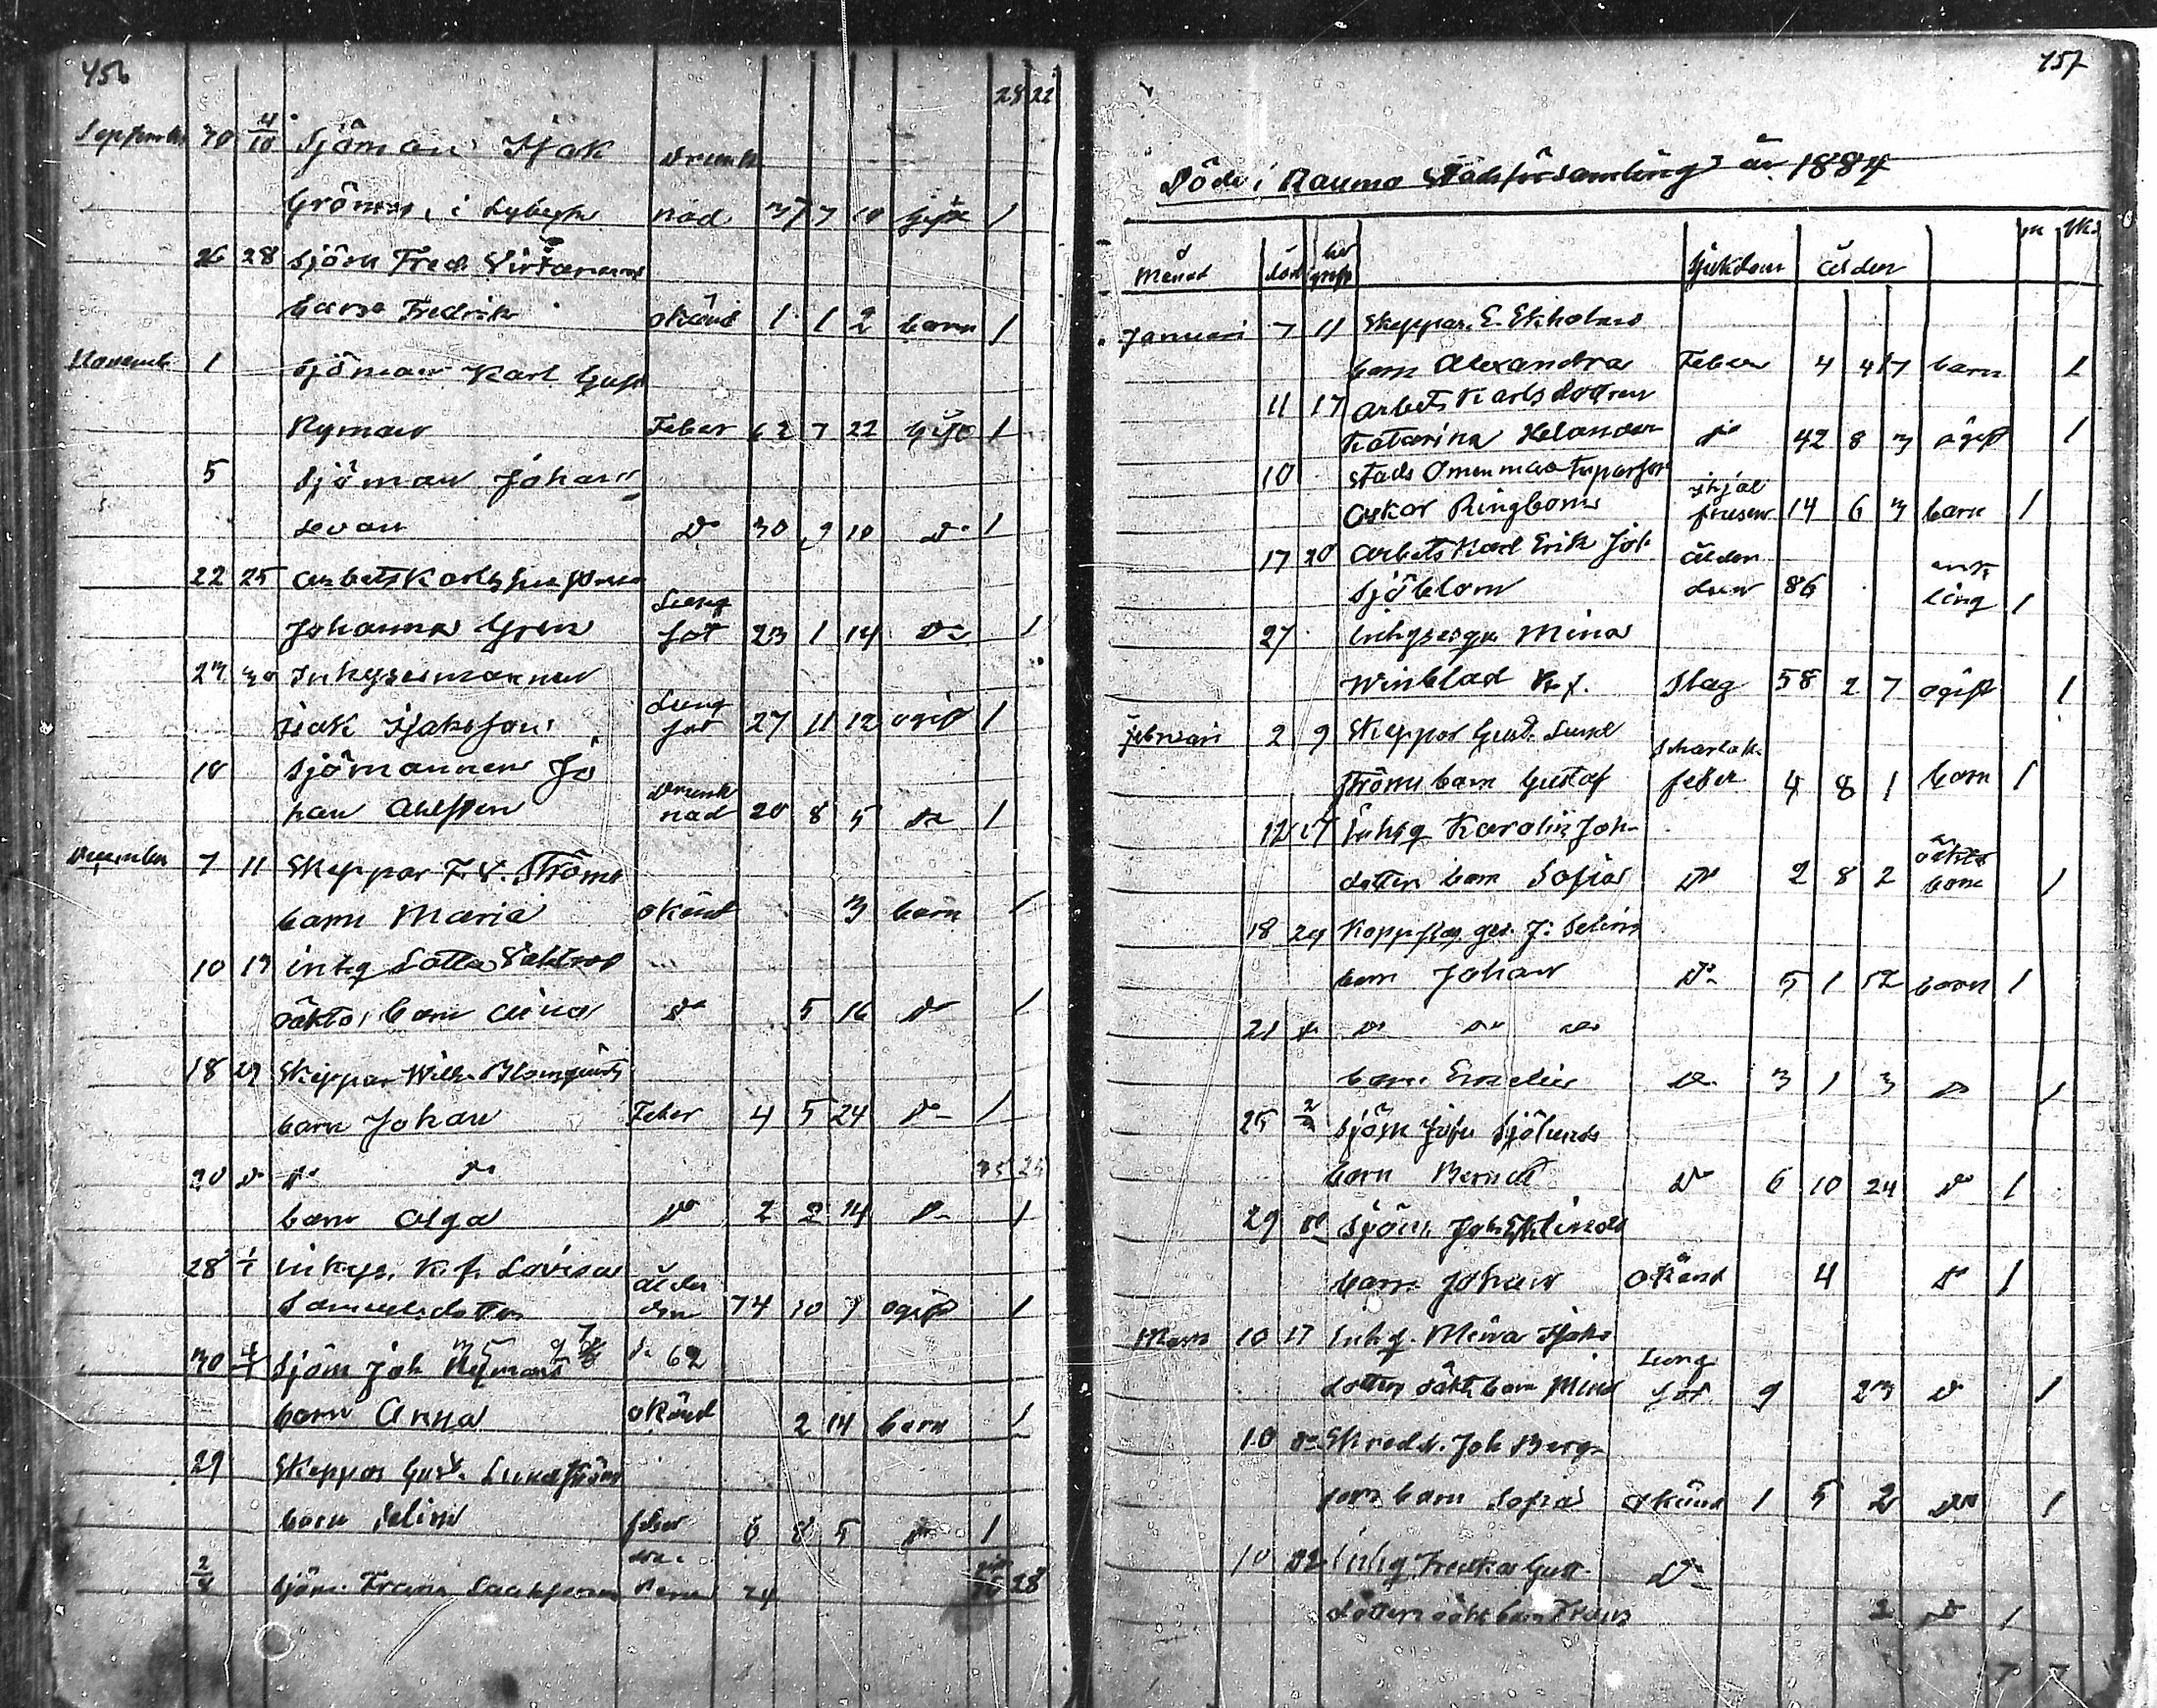 456
28 22
September 30 4/10 Sjöman Isak Drunk
Grönros, i Lybeck nad 37 7 10 gift 1
26 28 sjöm Fred. Virtanens
barn Fredrik okänd 1 1 2 barn 1
Novemb 1 sjöman Karl Gust
Nyman Feber 62 7 22 Gift 1
5 Sjöman Johan
Levan Do 30 9 10 Do 1
22 25 arbetskarls
Johanna Gren Lung sot 23 1 14 Do 1
23 30 Inhysesmannen
Isak Isaksson Lung sot 27 11 12 ogift 1
10 sjömannen Jo
han Ahlsten Drunk nad 20 8 5 Do 1
December 7 11 Skeppar F. V. Ströms
barn Maria okänd 3 barn 1
10 13 inhy Lotta
oäkta barn Aina Do 5 16 Do 1
18 29 Skeppar Wilh. Blomqvists
barn Johan Feber 4 5 24 Do 1
20 Do Do Do 35 25
barn Olga Do 2 2 14 Do 1
28 1/1 inhys. K. f. Lovisa
Samuelsdotter ålder dom 74 10 7 ogift 1
30 4/1 Sjöm Joh Nymans Do 62
barn Anna okänd 2 14 barn 1
29 Skeppar Gust. Lundström
barn Selim feber 6 8 5 Do 1
2/4 sjöm. Frans 24 28
457
Döde i Raumo Stadsförsamling år 1884
m qk.
Månad död begrof Sjukdom ålder
Januari 7 11 Skeppar. E. Ekholms
barn Alexandra Feber 4 4 17 barn 1
11 17 arbets Karls dottren
Katarina Helander Do 42 8 3 ogift 1
10 stads
Oskar Ringbom ihjäl frusen 14 6 3 barn 1
17 20 arbets Karl Erik Joh ålder
Sjöblom dom 86 enk ling 1
27 inhysesqv Mina
Winblad K. f. Slag 58 2 7 ogift 1
Februari 2 9 Skeppar Gust. Lund
ströms barn Gustaf Scharlak. feber 4 8 1 barn 1
12 17 Inhy Karolin Joh
dotters barn Sofia Do 2 8 2 oäkta barn 1
18 24 Koppslag ges. J. Selins
barn Johan Do 5 1 52 barn 1
21 Do Do Do Do
barn Emelie Do 3 1 3 Do 1
25 2/3 Sjöm Josef Sjölunds
barn Berndt Do 6 10 24 Do 1
29 Do Sjöm. Joh. Eklunds
barn Johan okänd 4 Do 1
Mars 10 17 Inhy. Mina Isaks
dotters oäkt barn Mina Lung sot. 9 23 Do 1
10 Do Skredd. Joh Berg
barn Sofia okänd 1 5 2 Do 1
10 22 Inhy Fredrika Gust. Do
dotters oäkt barn Frans 2 Do 1
7 7